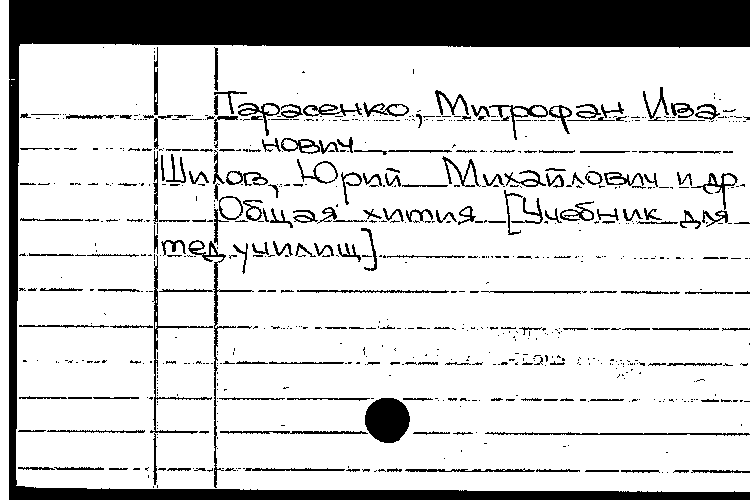 Тарасенко, Митрофан Ива-
нович.
Шилов, Юрий Михайлович и др
Общая химия [Учебник для
мед училищ]